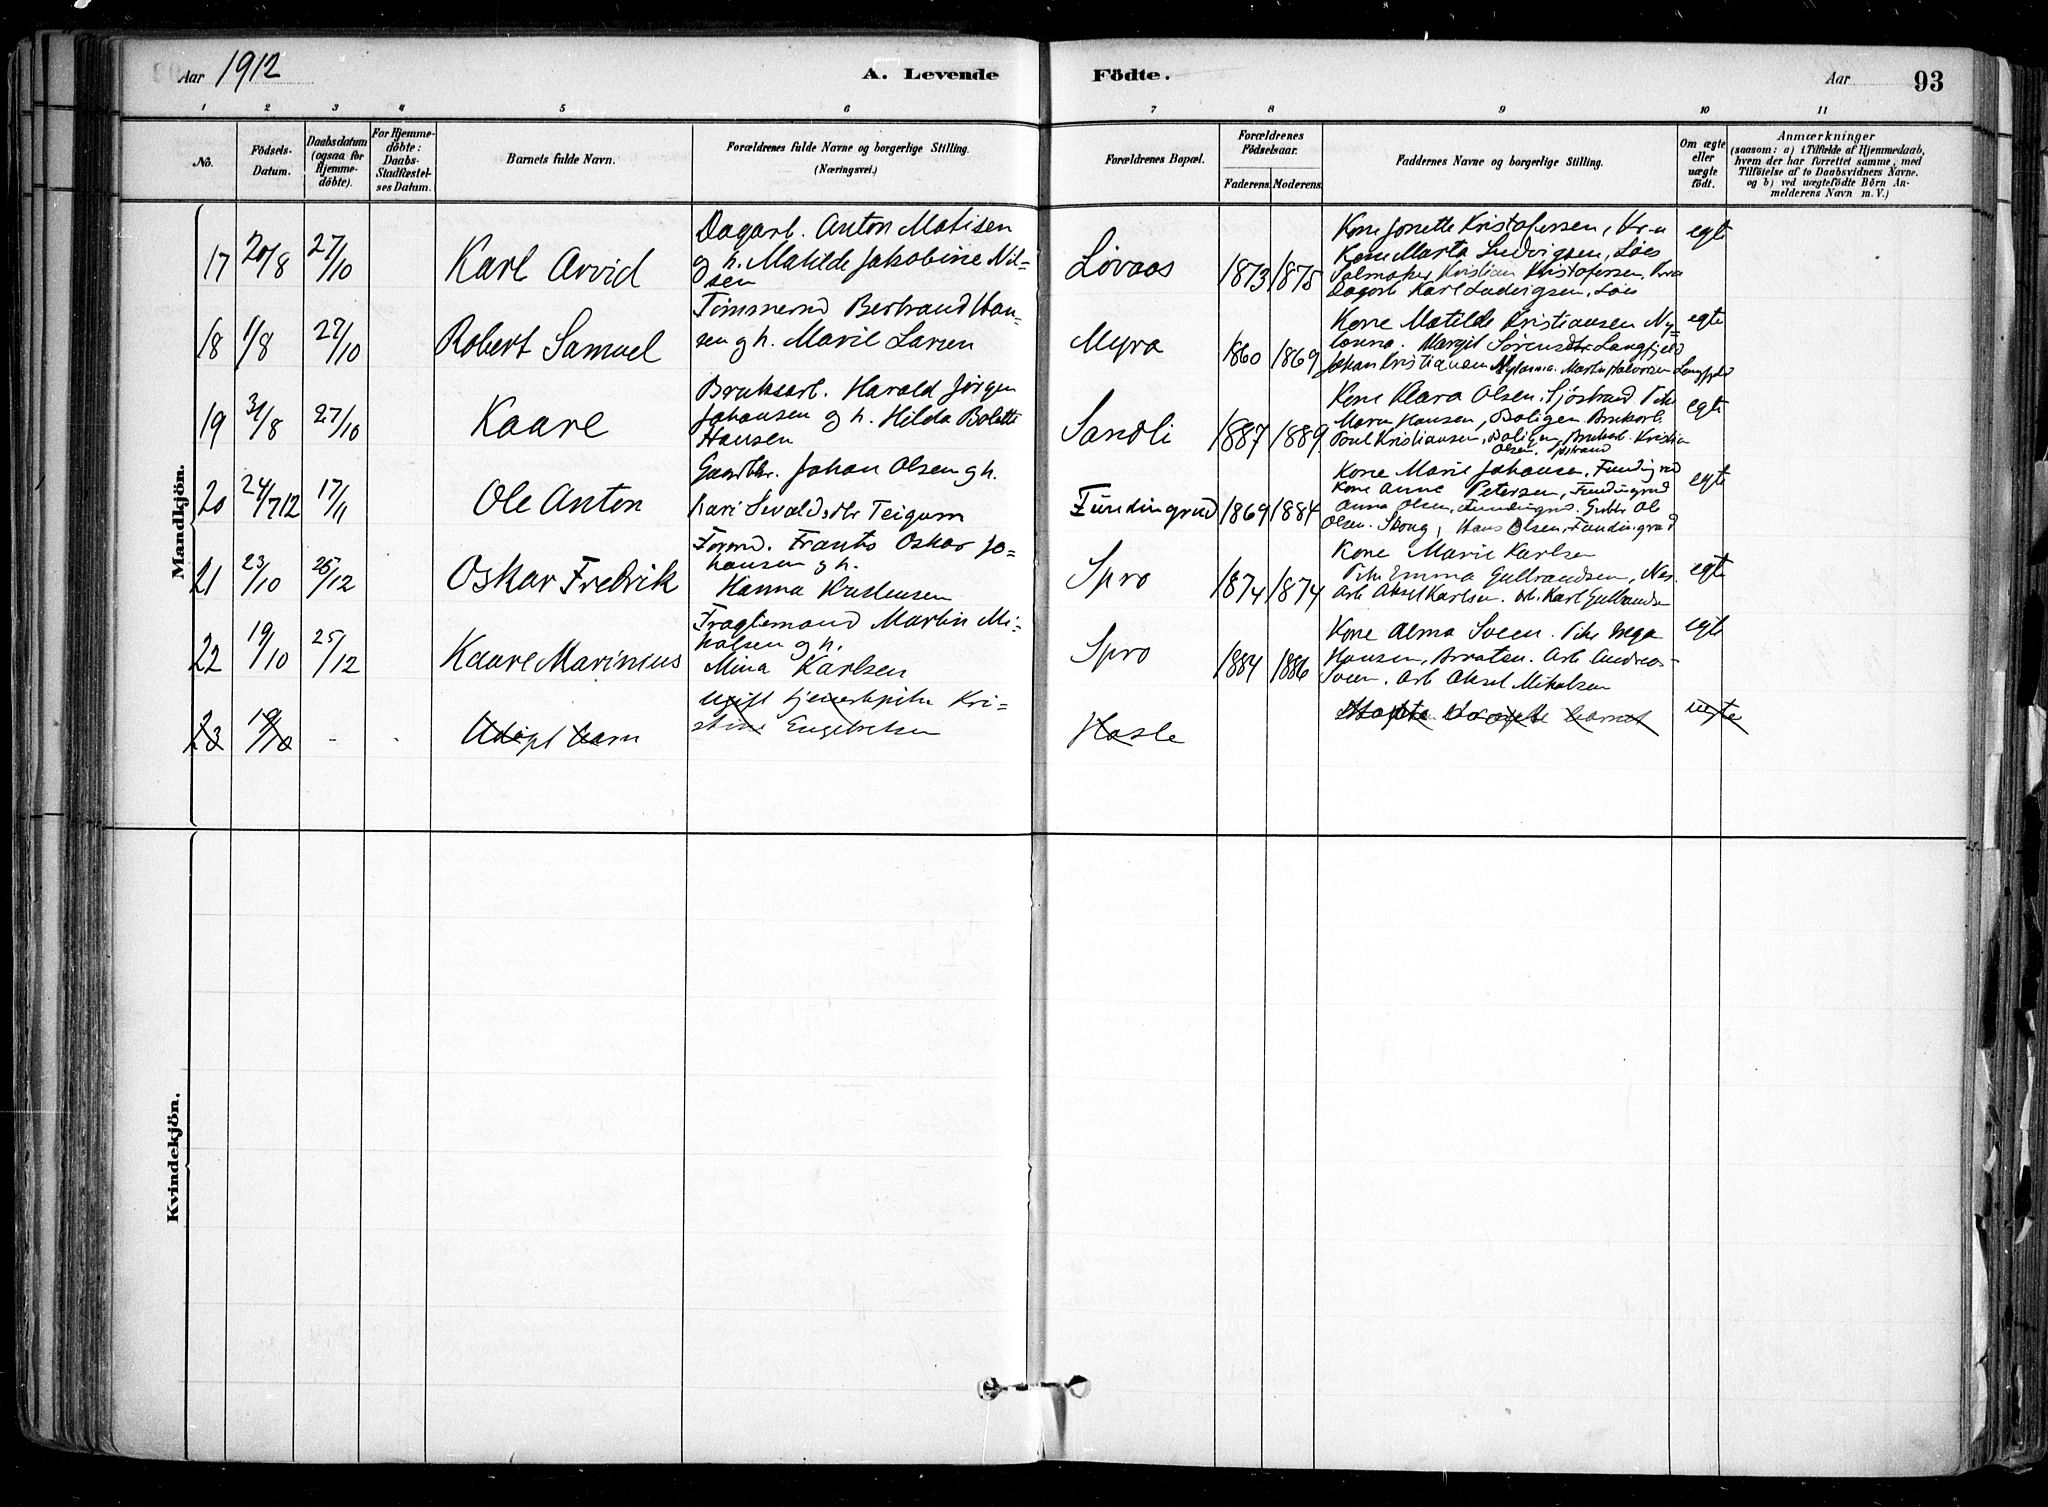 Aar 1912
A. Levende Födte.
Aar 93
1 2 3 4 5 6 7 8 9 10 11
No.
Födsels-
Datum.
Daabsdatum
(ogsaa for
Hjemme-
döbte).
For Hjemme-
döbte:
Daabs-
Stadfæstel-
ses Datum.
Barnets fulde Navn.
Forældrenes fulde Navne og borgerlige Stilling.
(Næringsvei.)
Forældrenes Bopæl.
Forældrenes
Födselsaar.
Faderens. Moderens.
Faddernes Navne og borgerlige Stilling.
Om ægte
eller
uægte
födt.
Anmærkninger
(saasom: a) i Tilfælde af Hjemmedaab,
hvem der har forrettet samme, med
Tilföielse af to Daabsvidners Navne.
og b) ved uægtefödte Börn An-
melderens Navn m. V.)
Mandkjön.
17 20/8 27/10 Karl Arvid
Dagarb. Anton Matisen
og h. Matilde Jakobine Nil-
sen
Lövaas 1873 1875
Kone Jonette Kristofersen, Kr-a
Kone Marta Ludvigsen, Løes
Salmaker Kristian Kristofersen, Kra
Dagarb Karl Ludvigsen, Løes
egte
18 1/8 27/10 Robert Samuel
Tømmermd Bertrand Han-
sen og h. Marie Larsen
Myra 1860 1869
Kone Matilde Kristiansen Ny-
Margit Sørensdtr Langfjeld
Johan Kristiansen Martin Halvorsen
egte
19 31/8 27/10 Kaare
Bruksarb. Harald Jørgen
Johansen og h. Hilda Bolette
Hansen
Sandli 1887 1889
Kone Klara Olsen, Sjøstrand Pike
Mara Hansen, Boligen Brukarb.
Paul Kristiansen, Boligen, Brukarb. Kristian
Olsen, Sjøstrand
egte
20 24/7 12 17/11 Ole Anton
Gaardbr. Johan Olsen og h.
Kari Sivaldsdtr Teigum
Fundingrud 1869 1884
Kone Marie Johansen, Fundingrud
Kone Anne Petersen, Fundingrud
Anna Olsen, Fundingrud. Gaardbr Ole
Olsen. Skoug, Hans Olsen, Fundingrud
egte
21 23/10 26/12 Oskar Fredrik
Formd. Frants Oskar Jo-
hansen og h.
Hanna Kristensen
Spro 1874 1874
Kone Marie Karlsen
Pike Emma Gulbrandsen, Nes.
Arb Aksel Karlsen. Arb. Karl Gulbrandsen
egte
22 19/10 25/12 Kaare Marinius
Fragtemand Martin Mi-
kalsen og h.
Mina Karlsen
Spro 1884 1886
Kone Alma Soeen. Pike Inga
Hansen, Braaten. Arb Andreas
Soeen. Arb Aksel Mikalsen
egte
23 19/10 - - Udøpt barn
ugift tjenestepike Kri-
stine Engebretsen
Hasle
uegte
Kvindekjön.